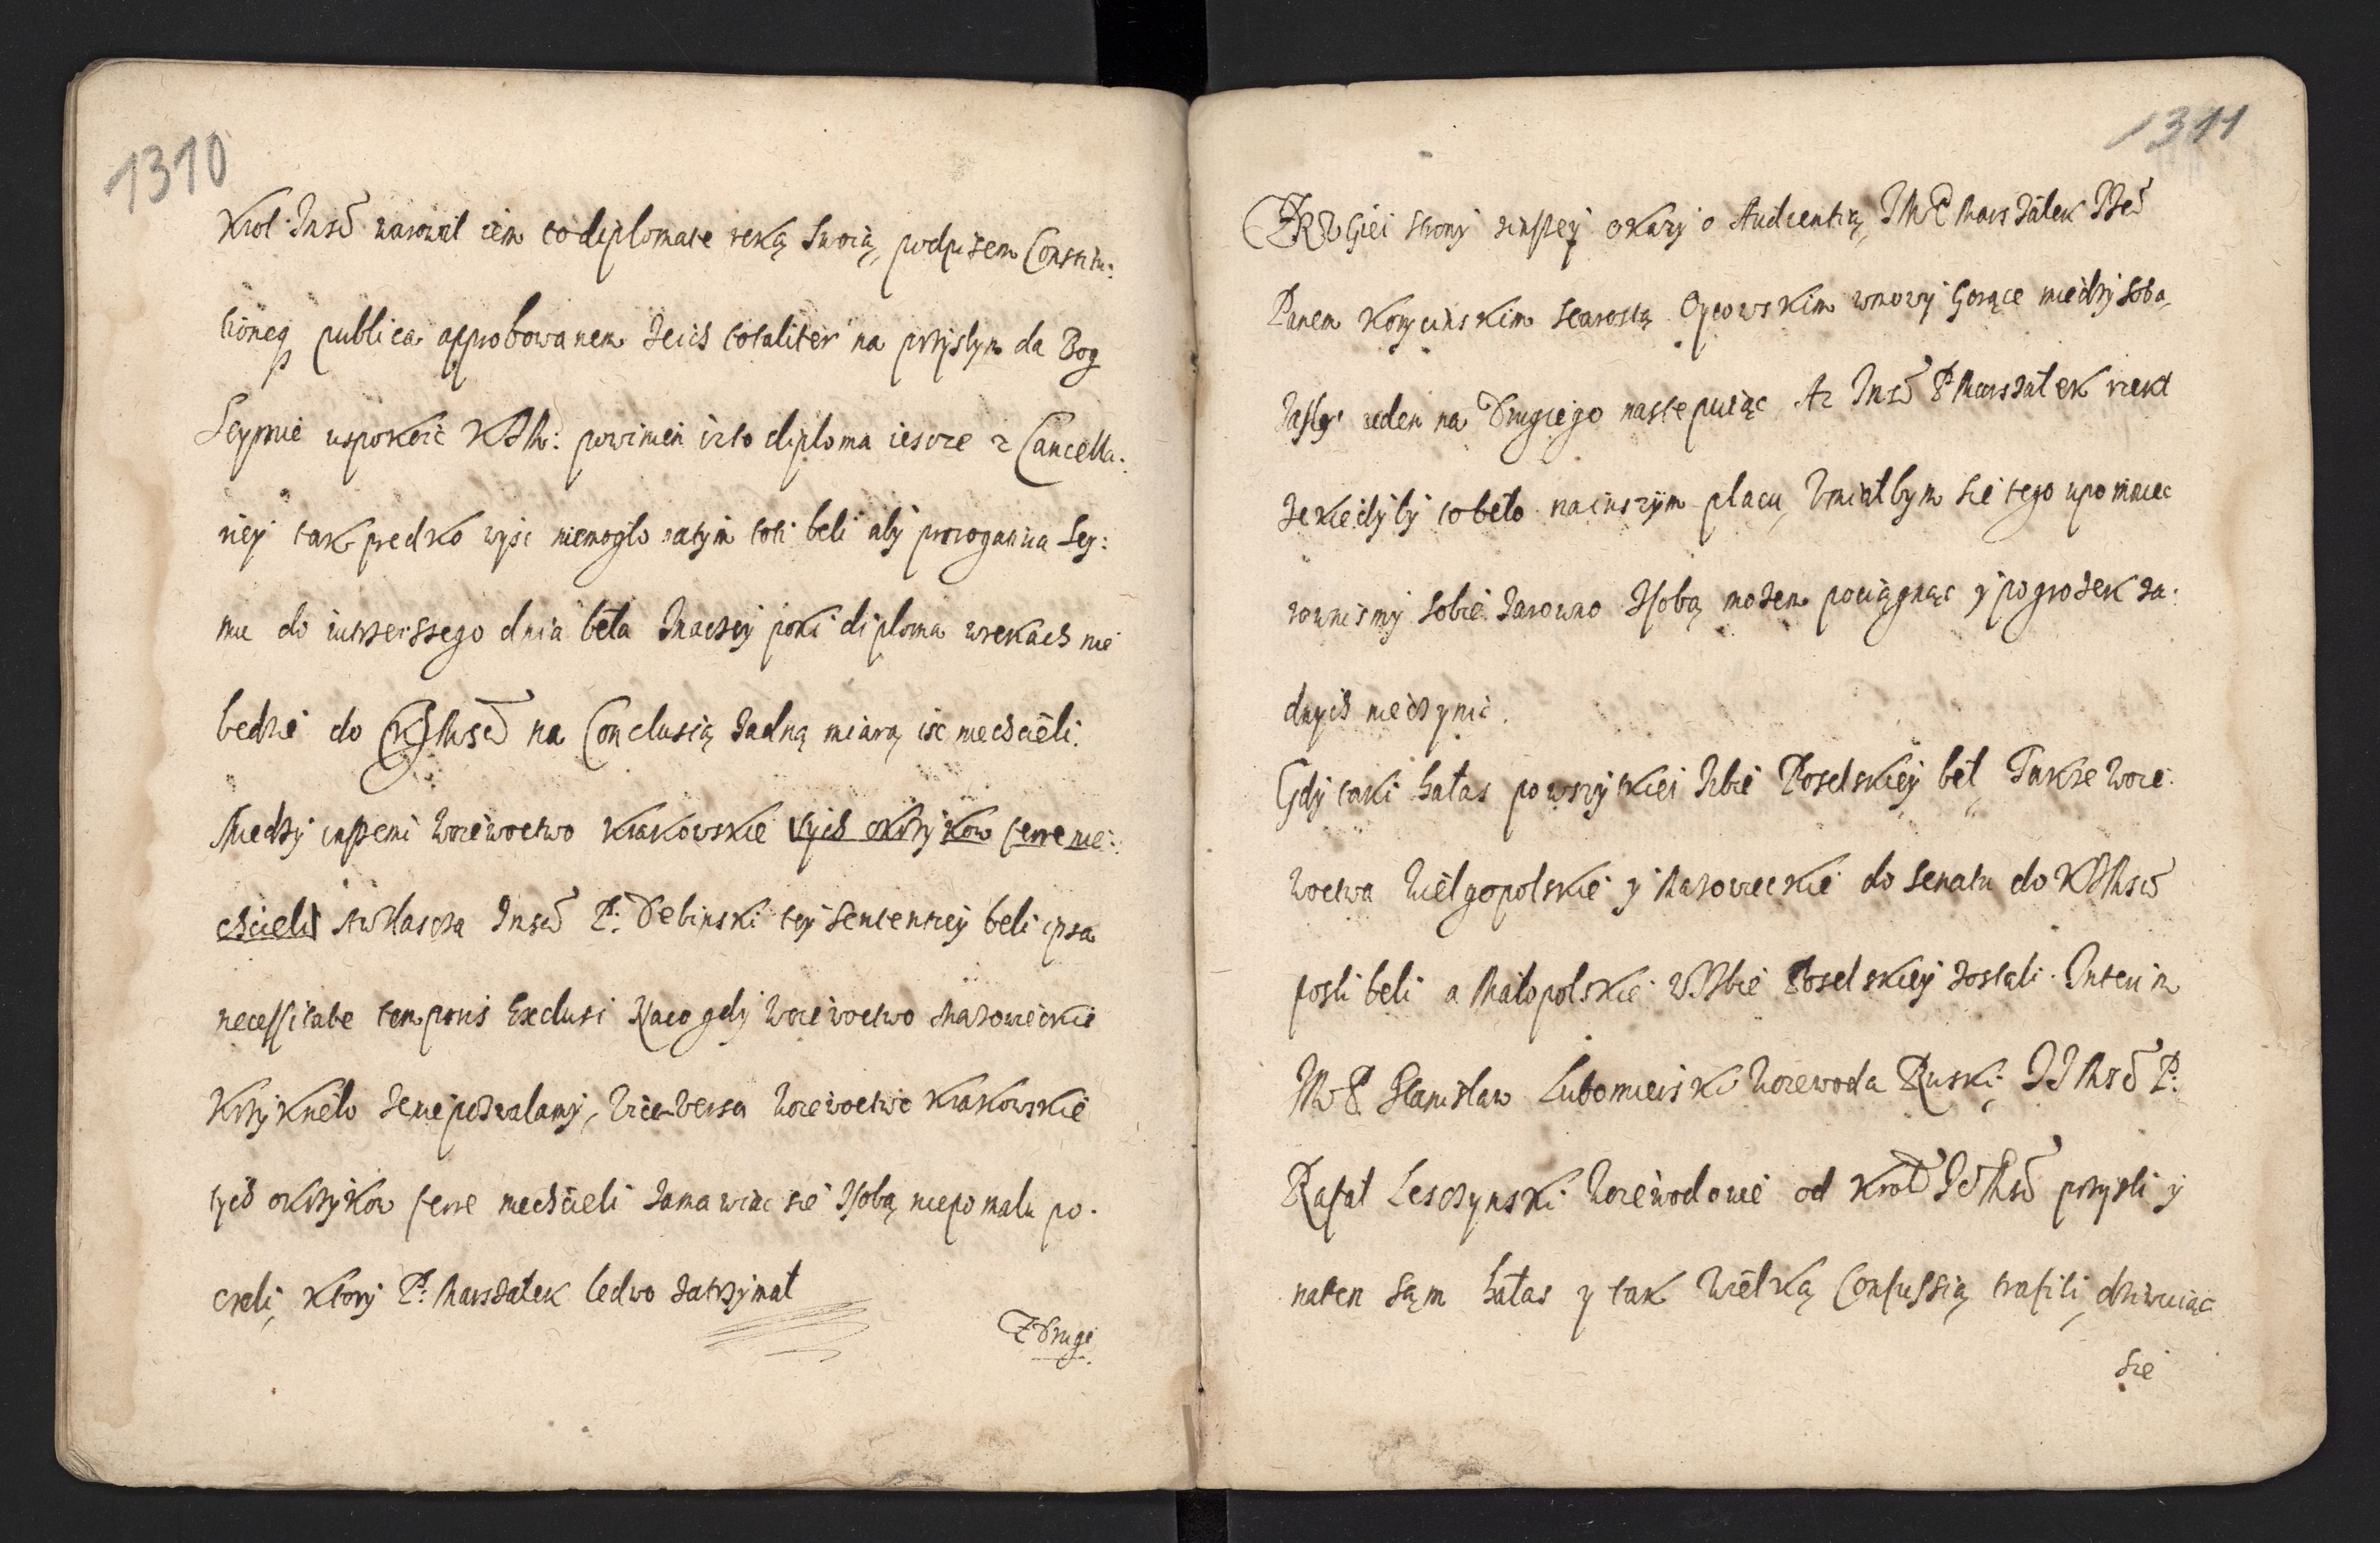 1310
Krol Jmść warował iem to diplomate reką Swoią, podpisem Constitu:
tioneq publica approbowanem Jeich totaliter na przyslym da Bog
Seymie uspokoić KJM: powinien izto diploma iescze z Cancella:
riey tak predko wyisc niemoglo zatym toti beli aby prorogatia Sey:
mu do iutrzeiszego dnia beła Inaczey poki diploma wrekach nie
bedzie do KJMsći na Conclusią zadną miarą isc niechcieli.
Miedzy inszemi Woiewoctwo Krakowskie tych okrzykow ferre nie:
chcieli Awłascza Jmść P: Debinski tey Sententiey beli ipsa
necessitate temporis Exclusi Naco gdy Woiewoctwo Mazowieckie
Krzykneło Zeniepozwalamy, Vice versa Woiewoctwo Krakowskie
tych okrzykow ferre niechcieli Zamawiac sie Zsobą niepomalu po:
czeli, ktory P: Marszałek ledwo Zatrzymał
Z Drugi
1311
Z DRUGiei strony zinszey okazy o Audientią, JMP Marszałek Zeć
Panem Korycinskim Starostą Oycowskim wmowy Gorące miedzy Sobą,
Zaszły ieden na Drugiego nastepuiąc Az Jmść P Marszałek rzekł
Ze kiedyby to beło nainszym placu, Vmiałbym sie tego upomniec
rownismy sobie Zarowno Zsobą mozem pociągnąc y pogrozek Za:
dnych nieczynic.
Gdy taki hałas powszytkiei Izbie Poselskiey beł, Takze Woie:
Woctwa Wielgopolskie y Mazowieckie do Senatu do KJMsći
poszli beli a Małopolskie W Izbie Poselskiey Zostali. Interim
JMP Stanisław Lubomierski Woiewoda Ruski JJMsć P:
Rafał Lesczynski Woiewodowie od Krola JeMsći przyszli y
naten Sąm hałas y tak Wielką Confussią trafili, dziwuiąc
Sie